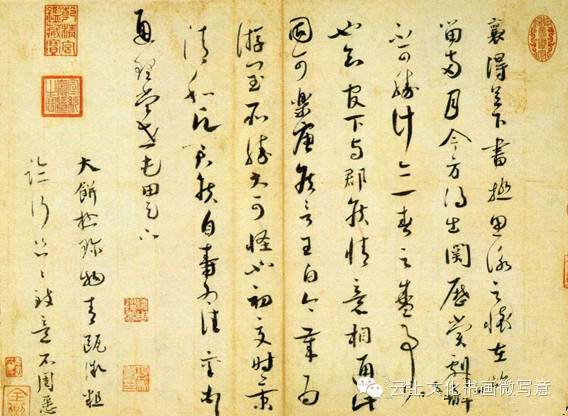 襄得足下書極思詠之懷在杭
留兩月今方得出關歷賞劇醉
不可勝計亦一春之盛事
也知官下與郡侯情意相通此
固可樂唐侯言王白今歲為
游閏所勝大可怪也初夏時景
清和願君侯自壽為佳襄頓首
通理當世屯田足下
大餅極珍物青甌微粗
臨行匆匆致意不周悉
云上文化书画微写意